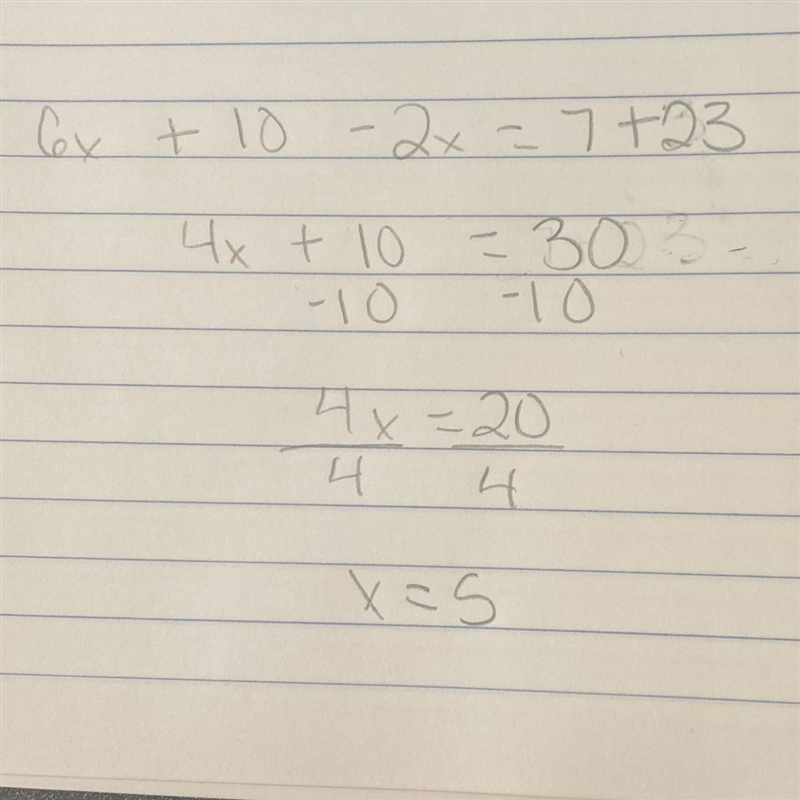 6x + 10 - 2x = 7 + 23
4x + 10 = 30
-10 -10
4x = 20
4 4
x = 5